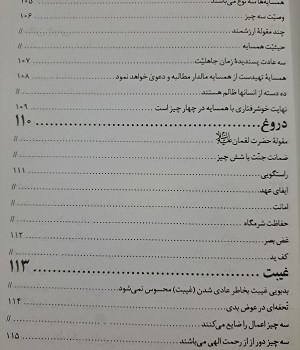 همسایه‌ها سه نوع می‌باشند ۱۰۵
وصیّت سه چیز ۱۰۶
چند مقولهٔ ارزشمند //
حیثیّت همسایه //
سه عادت پسندیدهٔ زمان جاهلیّت ۱۰۷
همسایهٔ تهیدست از همسایه مالدار مطالبه و دعوی خواهد نمود ۱۰۸
ده دسته از انسانها ظالم هستند //
نهایت خوشرفتاری با همسایه در چهار چیز است ۱۰۹
دروغ ۱۱۰
مقولهٔ حضرت لقمان //
ضمانت جنّت با شش چیز //
راستگویی ۱۱۱
ایفای عهد //
امانت //
حفاظت شرمگاه //
غض بصر ۱۱۲
کف ید //
غیبت ۱۱۳
بدبویی غیبت بخاطر عادی شدن (غیبت) محسوس نمی‌شود //
تحفه‌ای در عوض بدی ۱۱۴
سه چیز اعمال را ضایع می‌کنند //
سه چیز دور از از رحمت الهی می‌باشند ۱۱۵